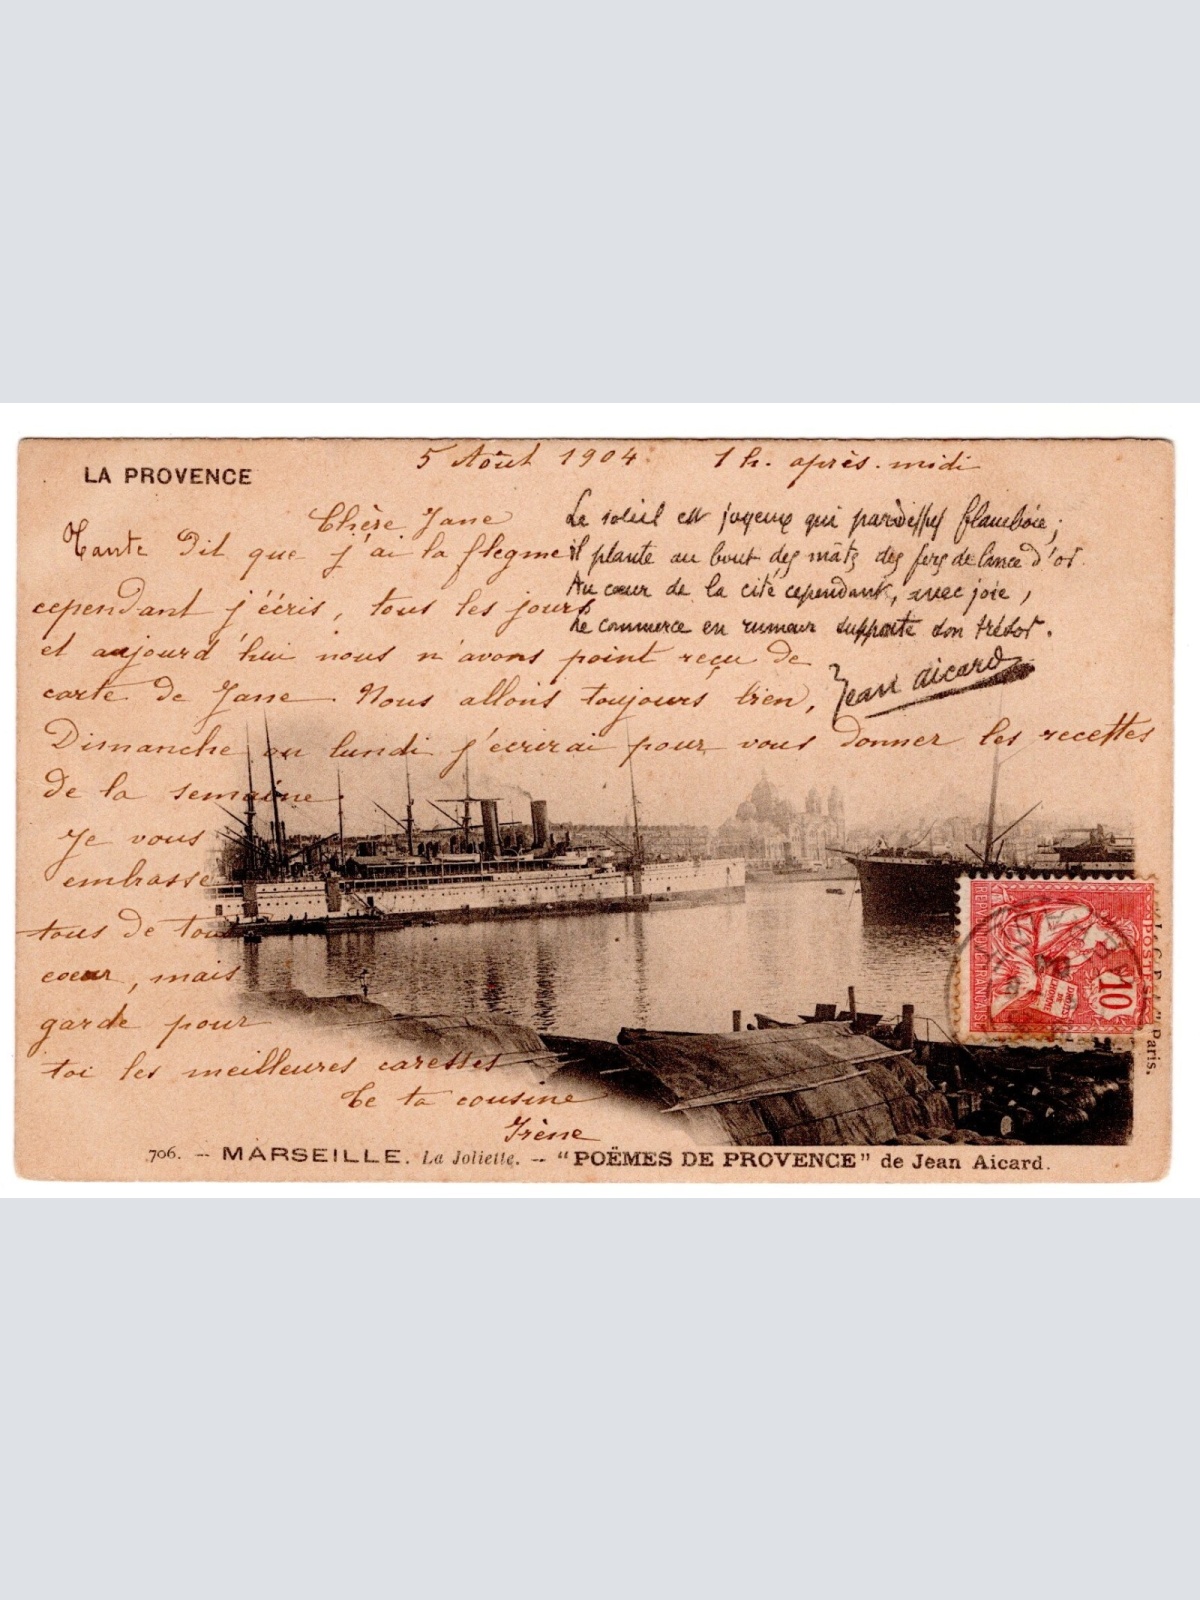 5 Août 1904. 1 h. après-midi
LA PROVENCE
Chère Jane
Tante Dit que j'ai la flegme
cependant j'écris, tous les jours
et aujourd'hui nous n'avons point reçu de
carte de Jane. Nous allons toujours bien,
Dimanche ou lundi j'ecrirai pour vous donner les recettes
de la semaine.
Je vous
embrasse
tous de tout
coeur, mais
garde pour
toi les meilleures caresses
De ta cousine
Irène
Le soleil est joyeux qui pardessus flamboie;
il plante au bout des mâts des fers de lance d'or.
Au cœur de la cité cependant, avec joie,
Le commerce en rumeur supporte son trésor.
Jean Aicard
POSTES
10
REPUBLIQUE FRANÇAISE
DROITS
DE
L'HOMME
Paris.
706. — MARSEILLE. La Joliette. — "POËMES DE PROVENCE" de Jean Aicard.